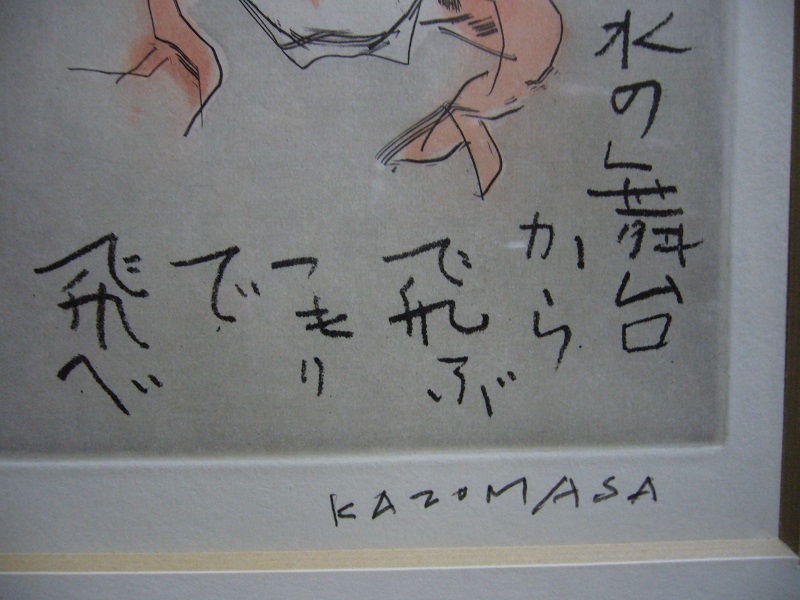 水の舞台
から
飛ぶ
つもり
で
飛べ
KAZUMASA